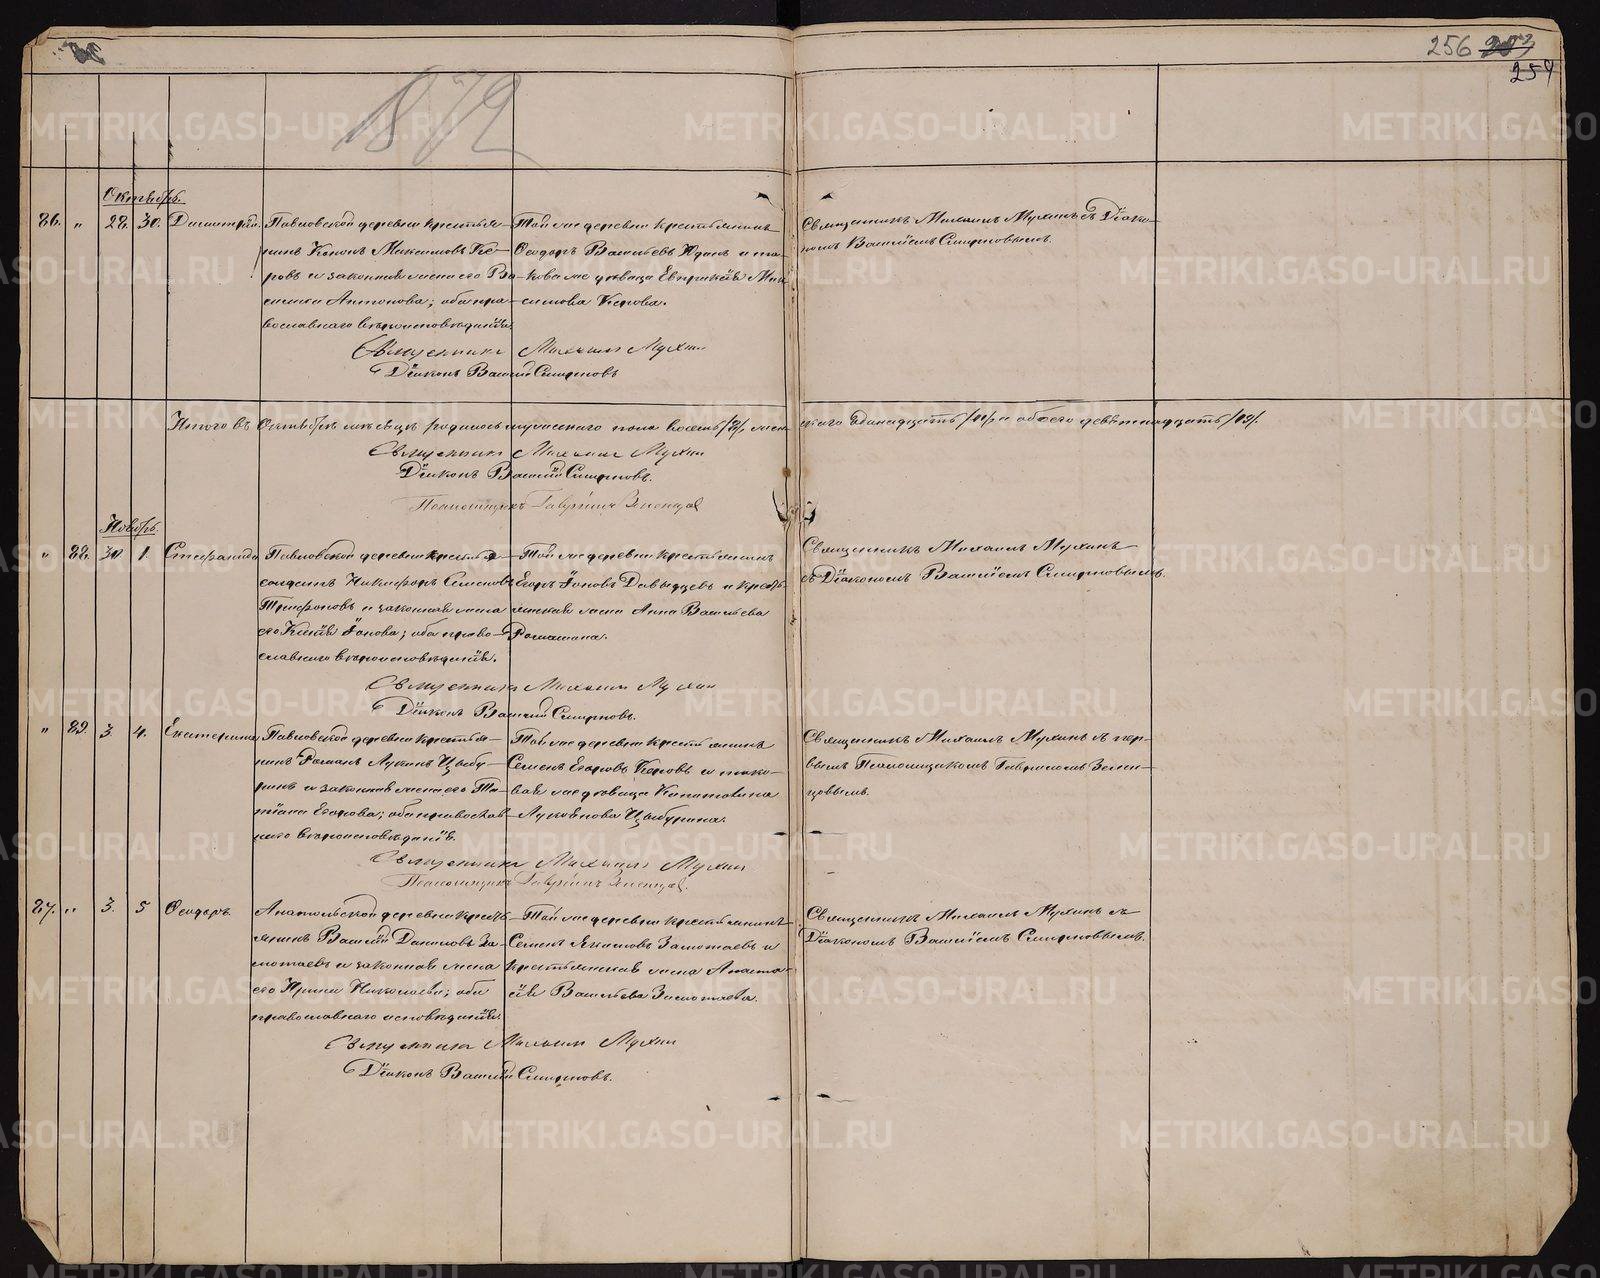 256
254
1872
Октябрь.
86. " 28. 30. Димитрій. Павловской деревни крестья-
нинъ Кононъ Максимовъ Ке-
ровъ и законная жена его Ва-
силиса Антонова; оба пра-
вославнаго вѣроисповѣданія.
Той же деревни крестьянинъ
Ѳеодоръ Васильевъ Юдинъ и та-
кова же дѣвица Евпраксія Мак-
симова Керова.
Священникъ Михаилъ Мухинъ съ Діако-
номъ Василіемъ Смирновымъ.
Священникъ Михаилъ Мухин
Діаконъ Василій Смирновъ
Итого въ Октябрѣ мѣсяцѣ родилось мужескаго пола восемь /8/, жен-
скаго одинадцать /11/, и обоего девятнадцать /19/.
Священникъ Михаилъ Мухин
Діаконъ Василій Смирновъ.
Псаломщикъ Гавріилъ Зеленцов
Ноябрь.
" 88. 30. 1. Стефанида Павловской деревни крестья-
Никифоръ Семеновъ
Трифоновъ и законная жена
его Ксенія Іонова; оба право-
славнаго вѣроисповѣданія.
Той же деревни крестьянинъ
Егоръ Іоновъ Давыдцевъ и кресть-
янская жена Анна Васильева
Ромашина.
Священникъ Михаилъ Мухинъ
съ Діакономъ Василіемъ Смирновымъ.
Священникъ Михаилъ Мухин
Діаконъ Василій Смирновъ.
" 89. 3. 4. Екатерина Павловской деревни крестья-
нинъ Романъ Лукинъ Цыбу-
ринъ и законная жена его Та-
тіана Егорова; оба православ-
наго вѣроисповѣданія.
Той же деревни крестьянинъ
Семенъ Егоровъ Керовъ и тако-
вая же дѣвица Капитолина
Цыбурина.
Священникъ Михаилъ Мухинъ съ пер-
вымъ Псаломщикомъ Гавріиломъ Зелен-
цовымъ.
Священникъ Михаилъ Мухин
Псаломщикъ Гавріилъ Зеленцов.
87. " 3. 5 Ѳеодоръ. Анатольской деревни кресть-
янинъ Василій Даниловъ За-
мотаевъ и законная жена
его Ирина Николаева; оба
православнаго исповѣданія.
Той же деревни крестьянинъ
Семенъ Якимовъ Замотаевъ и
крестьянская жена Анаста-
сія Васильева Замотаева.
Священникъ Михаилъ Мухинъ съ
Діакономъ Василіемъ Смирновымъ.
Священникъ Михаилъ Мухин
Діаконъ Василій Смирновъ.
METRIKI.GASO-URAL.RU